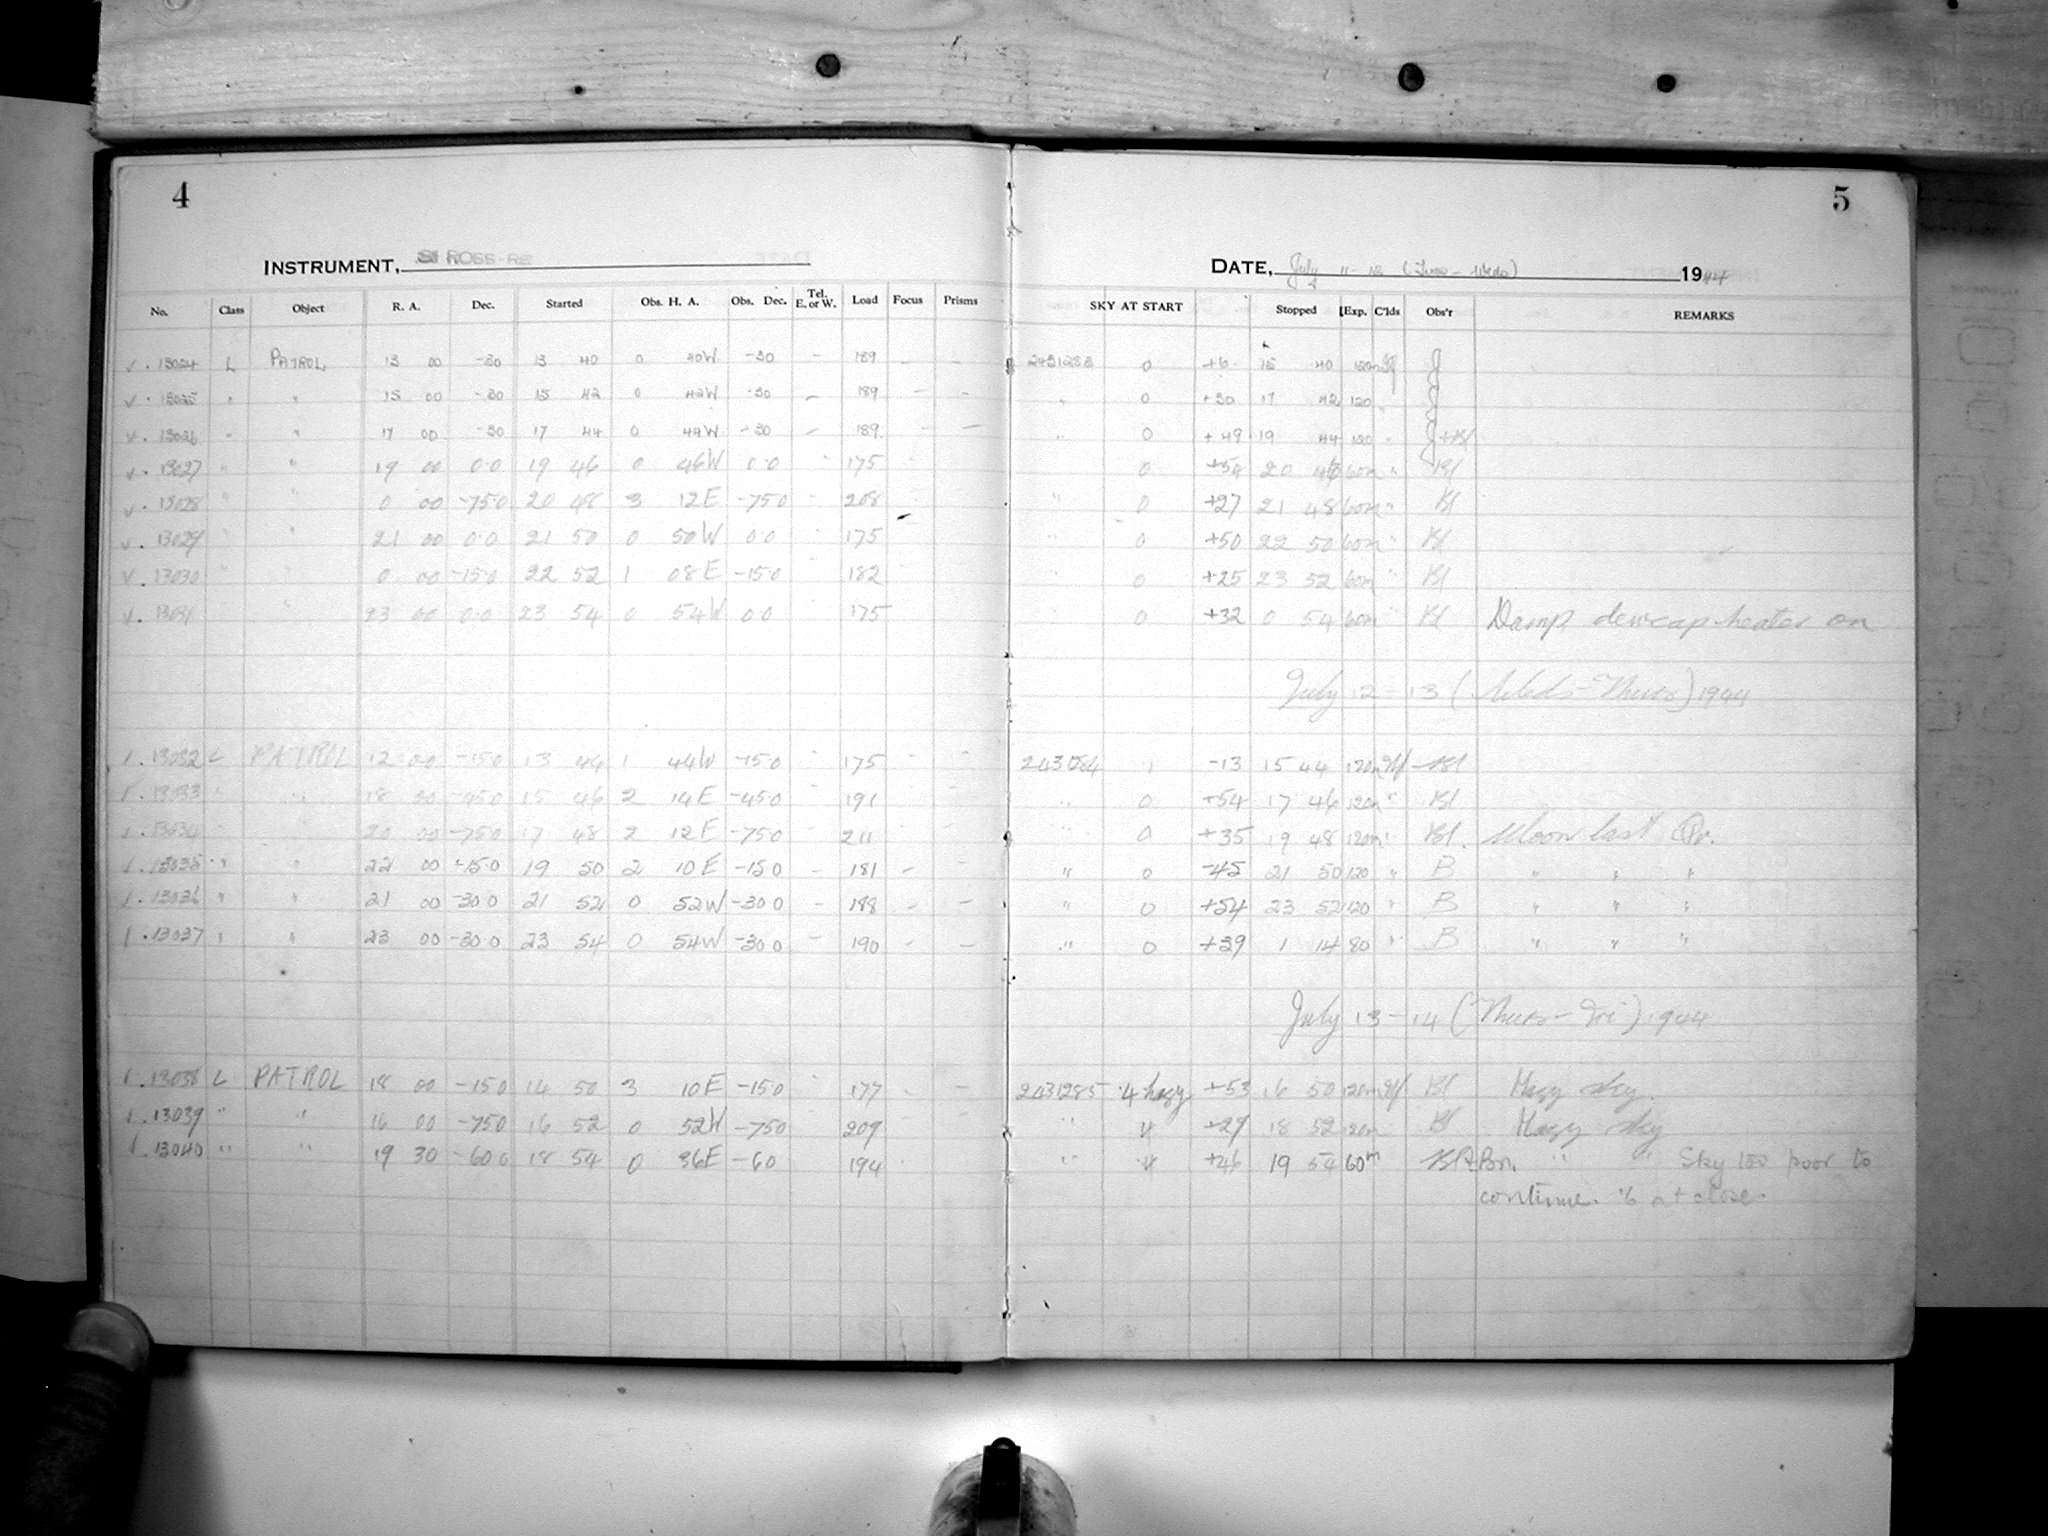 4
5
INSTRUMENT, SI ROSS-RE
DATE, July 11-12 (Tues-Weds) 1944
No. Class Object R. A. Dec. Started Obs. H. A. Obs. Dec. Tel. E. or W. Load Focus Prisms SKY AT START Stopped Exp. C'lds Obs'r REMARKS
√. 13024 L PATROL 13 00 -30 13 40 0 40W -30 - 189 - - 2431283 0 +6 15 40 120m J
√. 13025 " " 15 00 -30 15 42 0 42W -30 - 189 - - " 0 +30 17 42 120 " J
√. 13026 " " 17 00 -30 17 44 0 44W -30 - 189 - - " 0 +49 19 44 120 " J+Bl
√. 13027 " " 19 00 0.0 19 46 0 46W 0.0 " 175 0 +54 20 46 60m " Bl
√. 13028 " " 0 00 -750 20 48 3 12E -750 - 208 " 0 +27 21 48 60m " Bl
√. 13029 " " 21 00 0.0 21 50 0 50W 0.0 " 175 " 0 +50 22 50 60m " Bl
√. 13030 " " 0 00 -150 22 52 1 08E -150 " 182 " 0 +25 23 52 60m " Bl
√. 13031 " 23 00 0.0 23 54 0 54W 0.0 " 175 0 +32 0 54 60m " Bl Damp dewcap heater on
July 12-13 (Weds-Thurs) 1944
√. 13032 L PATROL 12 00 -150 13 44 1 44W -150 - 175 - - 2431284 1 -13 15 44 120m Bl
√. 13033 " " 18 00 -450 15 46 2 14E -450 " 191 - - " 0 +54 17 46 120m " Bl
√. 13034 " " 20 00 -750 17 48 2 12E -750 " 211 " 0 +35 19 48 120m " Bl. Moon last Qr.
√. 13035 " " 22 00 -150 19 50 2 10E -150 - 181 - - " 0 -45 21 50 120 " B " " "
√. 13036 " " 21 00 -300 21 52 0 52W -300 - 188 - - " 0 +54 23 52 120 " B " " "
√. 13037 " " 23 00 -300 23 54 0 54W -300 - 190 - - " 0 +39 1 14 80 " B " " "
July 13-14 (Thurs-Fri) 1944
√. 13038 L PATROL 18 00 -150 14 50 3 10E -150 - 177 - - 2431285 ·4 hazy +53 16 50 120m Bl Hazy sky.
√. 13039 " " 16 00 -750 16 52 0 52W -750 209 " 4 +29 18 52 120m Bl Hazy sky
√. 13040 " " 19 30 -600 18 54 0 36E -60 194 " 4 +46 19 54 60m Bn. " " Sky too poor to
continue. ·6 at close.